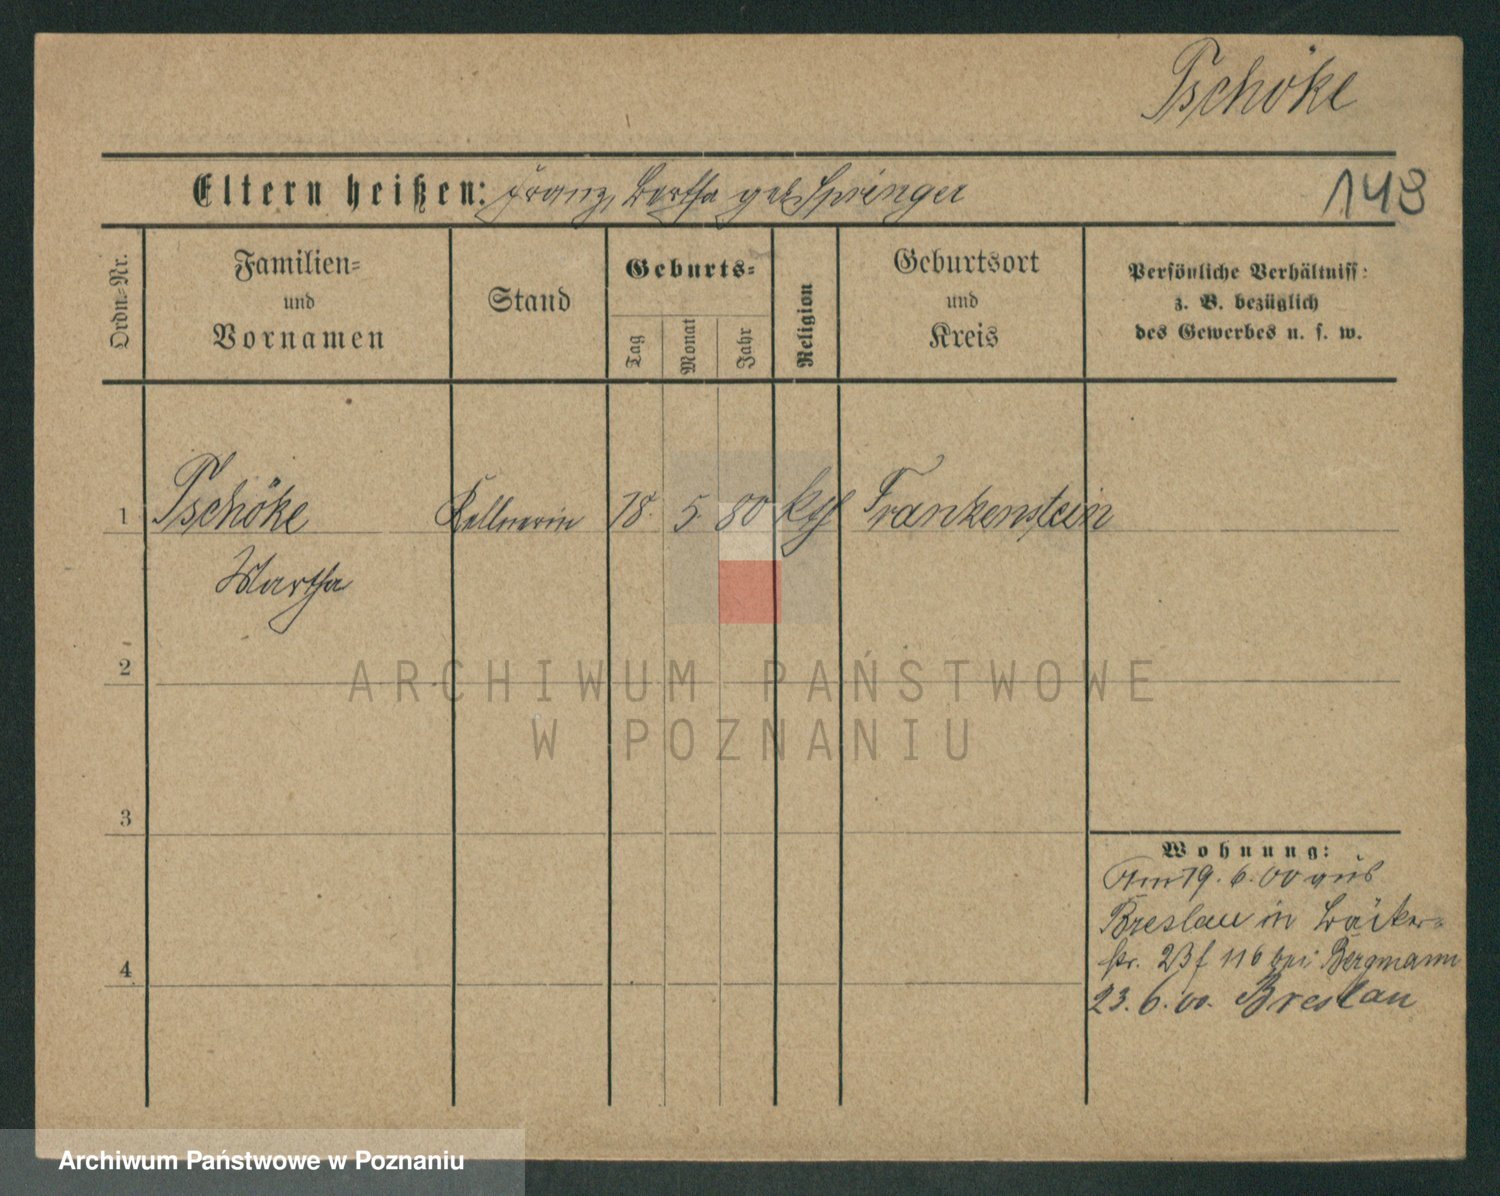 Tschöke
Eltern heißen: Franz, Bertha geb. Springer
148
Ordn.-Nr.
Familien-
und
Vornamen
Stand
Geburts-
Tag
Monat
Jahr
Religion
Geburtsort
und
Kreis
Persönliche Verhältniss:
z. B. bezüglich
des Gewerbes u. s. w.
1 Tschöke Kellnerin 18. 5 80 kth Frankenstein
Martha
2
ARCHIWUM PAŃSTWOWE
W POZNANIU
3
4
Wohnung:
Am 19. 6. 00 aus
Breslau in Bäcker-
str. 23 f 116 bei Bergmann
23. 6. 00. Breslau
Archiwum Państwowe w Poznaniu